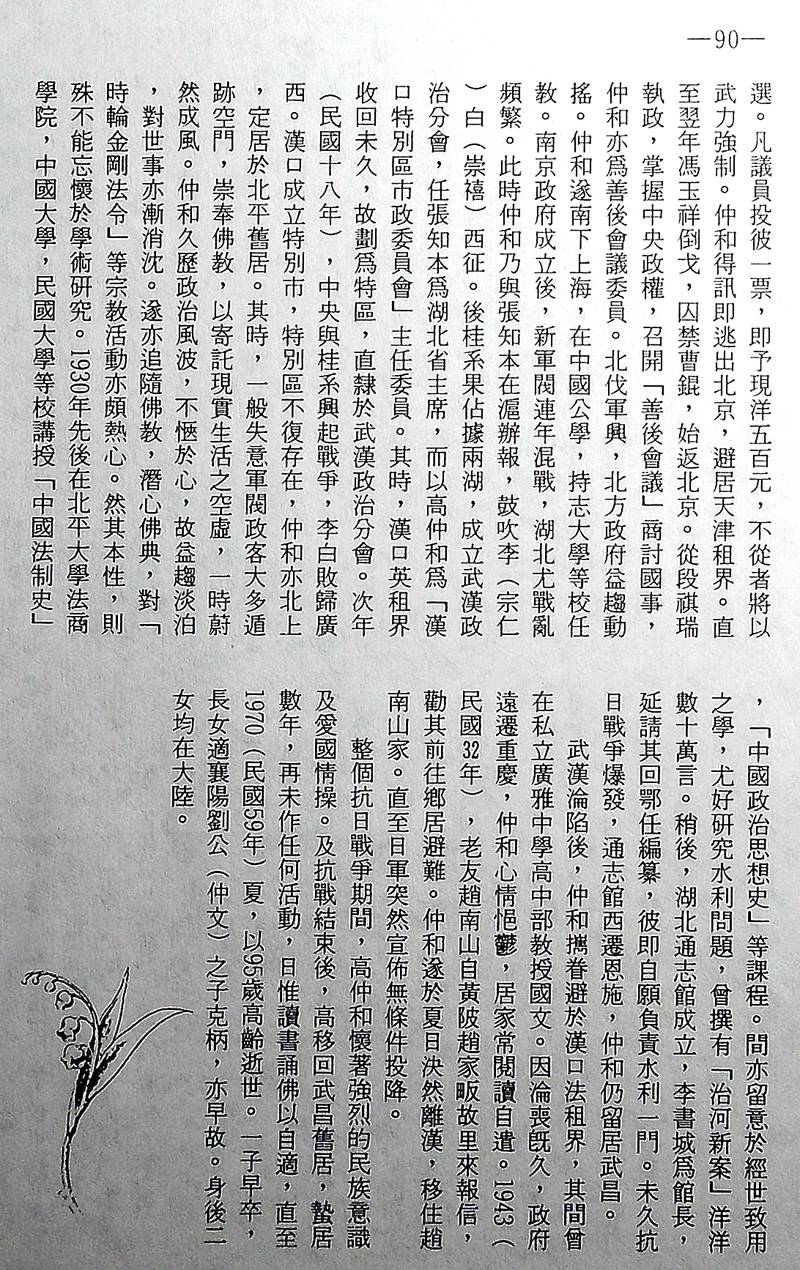 —90—
選。凡議員投彼一票，即予現洋五百元，不從者將以
武力強制。仲和得訊即逃出北京，避居天津租界。直
至翌年馮玉祥倒戈，囚禁曹錕，始返北京。從段祺瑞
執政，掌握中央政權，召開「善後會議」商討國事，
仲和亦爲善後會議委員。北伐軍興，北方政府益趨動
搖。仲和遂南下上海，在中國公學，持志大學等校任
教。南京政府成立後，新軍閥連年混戰，湖北尤戰亂
頻繁。此時仲和乃與張知本在滬辦報，鼓吹李（宗仁
）白（崇禧）西征。後桂系果佔據兩湖，成立武漢政
治分會，任張知本爲湖北省主席，而以高仲和爲「漢
口特別區市政委員會」主任委員。其時，漢口英租界
收回未久，故劃爲特區，直隸於武漢政治分會。次年
（民國十八年），中央與桂系興起戰爭，李白敗歸廣
西。漢口成立特別市，特別區不復存在，仲和亦北上
，定居於北平舊居。其時，一般失意軍閥政客大多遁
跡空門，崇奉佛教，以寄託現實生活之空虛，一時蔚
然成風。仲和久歷政治風波，不愜於心，故益趨淡泊
，對世事亦漸消沈。遂亦追隨佛教，潛心佛典，對「
時輪金剛法令」等宗教活動亦頗熱心。然其本性，則
殊不能忘懷於學術研究。1930年先後在北平大學法商
學院，中國大學，民國大學等校講授「中國法制史」
，「中國政治思想史」等課程。間亦留意於經世致用
之學，尤好研究水利問題，曾撰有「治河新案」洋洋
數十萬言。稍後，湖北通志館成立，李書城爲館長，
延請其回鄂任編纂，彼即自願負責水利一門。未久抗
日戰爭爆發，通志館西遷恩施，仲和仍留居武昌。
武漢淪陷後，仲和攜眷避於漢口法租界，其間曾
在私立廣雅中學高中部教授國文。因淪喪旣久，政府
遠遷重慶，仲和心情悒鬱，居家常閱讀自遣。1943（
民國32年），老友趙南山自黃陂趙家畈故里來報信，
勸其前往鄉居避難。仲和遂於夏日決然離漢，移住趙
南山家。直至日軍突然宣佈無條件投降。
整個抗日戰爭期間，高仲和懷著強烈的民族意識
及愛國情操。及抗戰結束後，高移回武昌舊居，蟄居
數年，再未作任何活動，日惟讀書誦佛以自適，直至
1970（民國59年）夏，以95歲高齡逝世。一子早卒，
長女適襄陽劉公（仲文）之子克柄，亦早故。身後二
女均在大陸。